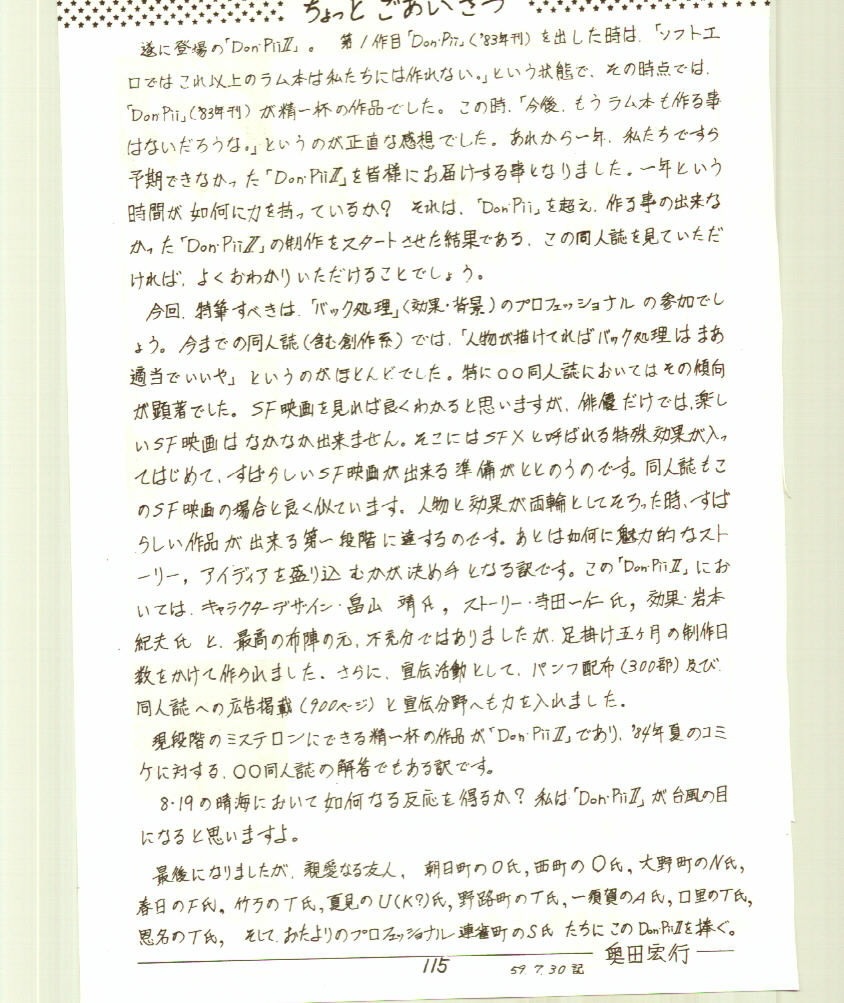 ちょっと ごあいさつ
遂に登場の「Don・PiiⅡ」。 第1作目「Don・Pii」('83年刊)を出した時は、「ソフトエ
ロではこれ以上のラム本は私たちには作れない。」という状態で、その時点では、
「Don・Pii」('83年刊)が精一杯の作品でした。この時、「今後、もうラム本も作る事
はないだろうな。」というのが正直な感想でした。あれから一年、私たちですら
予期できなかった「Don・PiiⅡ」を皆様にお届けする事となりました。一年という
時間が如何に力を持っているか? それは、「Don・Pii」を超え、作る事の出来な
かった「Don・PiiⅡ」の制作をスタートさせた結果である、この同人誌を見ていただ
ければ、よくおわかりいただけることでしょう。
今回、特筆すべきは、「バック処理」(効果・背景)のプロフェッショナルの参加でし
ょう。今までの同人誌(含む創作系)では、「人物が描けてればバック処理はまあ
適当でいいや」というのがほとんどでした。特に○○同人誌においてはその傾向
が顕著でした。SF映画を見れば良くわかると思いますが、俳優だけでは、楽し
いSF映画はなかなか出来ません。そこにはSFXと呼ばれる特殊効果が入っ
てはじめて、すばらしいSF映画が出来る準備がととのうのです。同人誌もこ
のSF映画の場合と良く似ています。人物と効果が両輪としてそろった時、すば
らしい作品が出来る第一段階に達するのです。あとは如何に魅力的なスト
ーリー，アイディアを盛り込むかが決め手となる訳です。この「Don・PiiⅡ」にお
いては、キャラクターデザイン・畠山 靖氏，ストーリー・寺田一仁氏，効果・岩本
紀夫氏 と、最高の布陣の元、不充分ではありましたが、足掛け五ヶ月の制作日
数をかけて作られました。さらに、宣伝活動として、パンフ配布(300部)及び、
同人誌への広告掲載(900ページ)と宣伝分野へも力を入れました。
現段階のミステロンにできる精一杯の作品が「Don・PiiⅡ」であり、'84年夏のコミ
ケに対する、○○同人誌の解答でもある訳です。
8・19の晴海において如何なる反応を得るか? 私は「Don・PiiⅡ」が台風の目
になると思いますよ。
最後になりましたが、親愛なる友人， 朝日町のO氏，西町のO氏，大野町のN氏，
春日のF氏，竹ラのT氏，夏見のU(K?)氏，野路町のT氏，一須賀のA氏，口里のT氏，
恩名のT氏， そして、おたよりのプロフェッショナル連雀町のS氏 たちにこのDon・PiiⅡを捧ぐ。
奥田宏行
115 59.7.30記